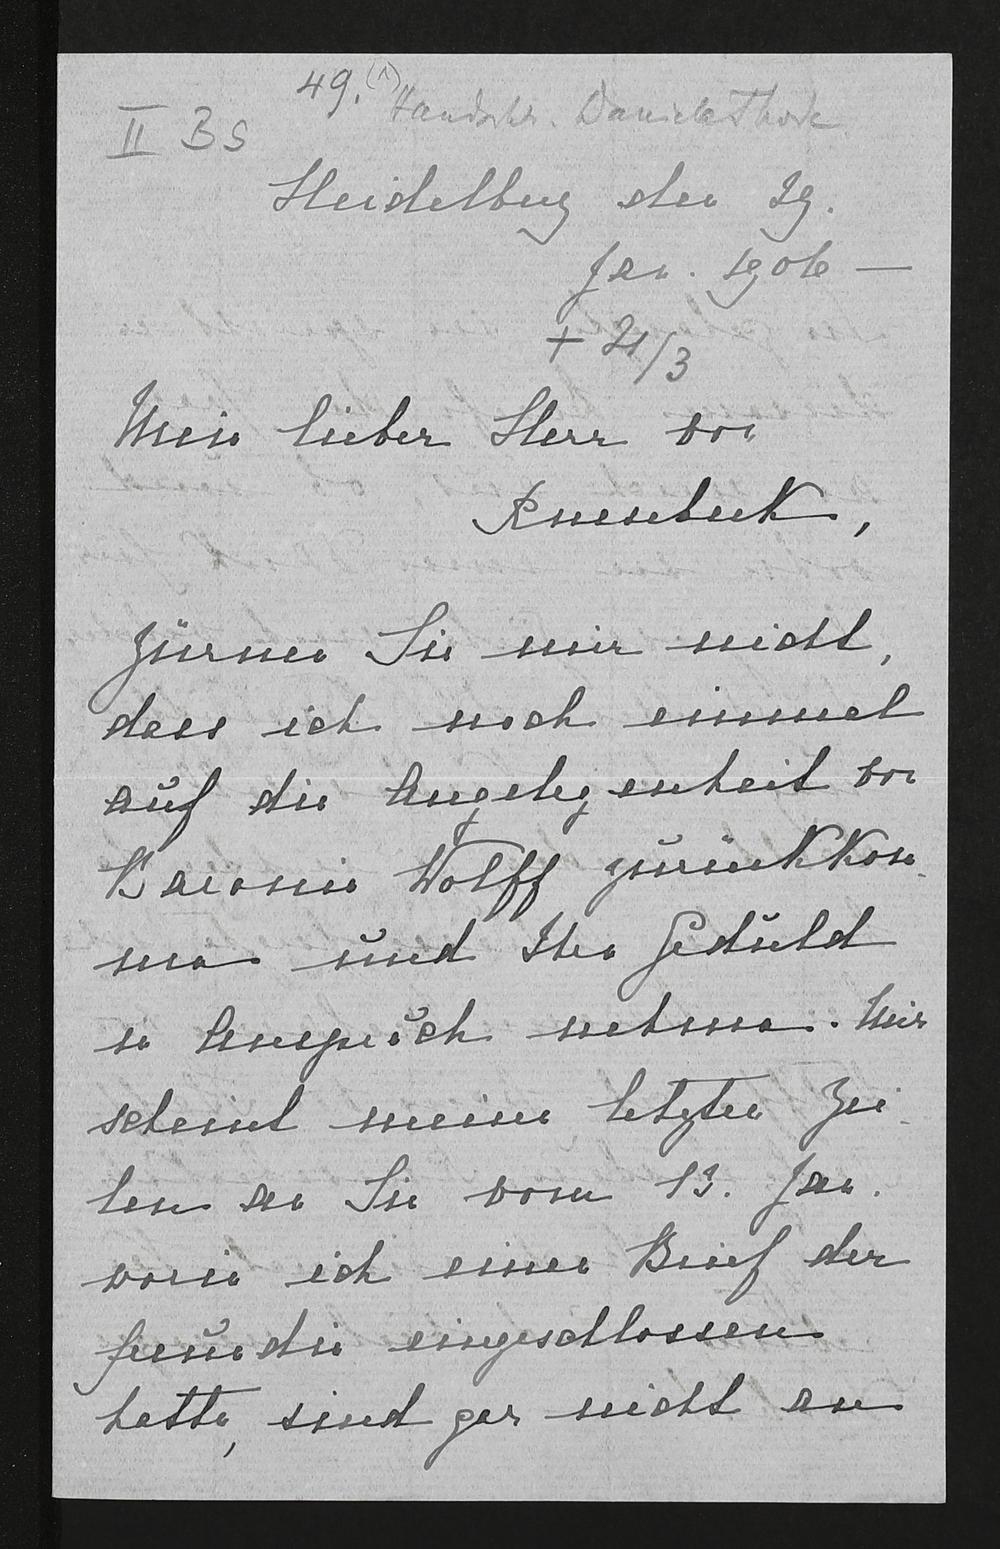 49. (1) Handschr. Daniela Thode
II B s
Heidelberg den 29.
Jan. 1906 —
+ 21/3
Mein lieber Herr von
Knesebeck,
Zürnen Sie mir nicht,
dass ich noch einmal
auf die Angelegenheit von
Baronin Wolff zurückkom-
me und Ihre Geduld
in Anspruch nehme. Mir
scheint meine letzten Zei-
len an Sie vom 13. Jan.
worin ich einen Brief der
Freundin eingeschlossen
hatte, sind gar nicht an